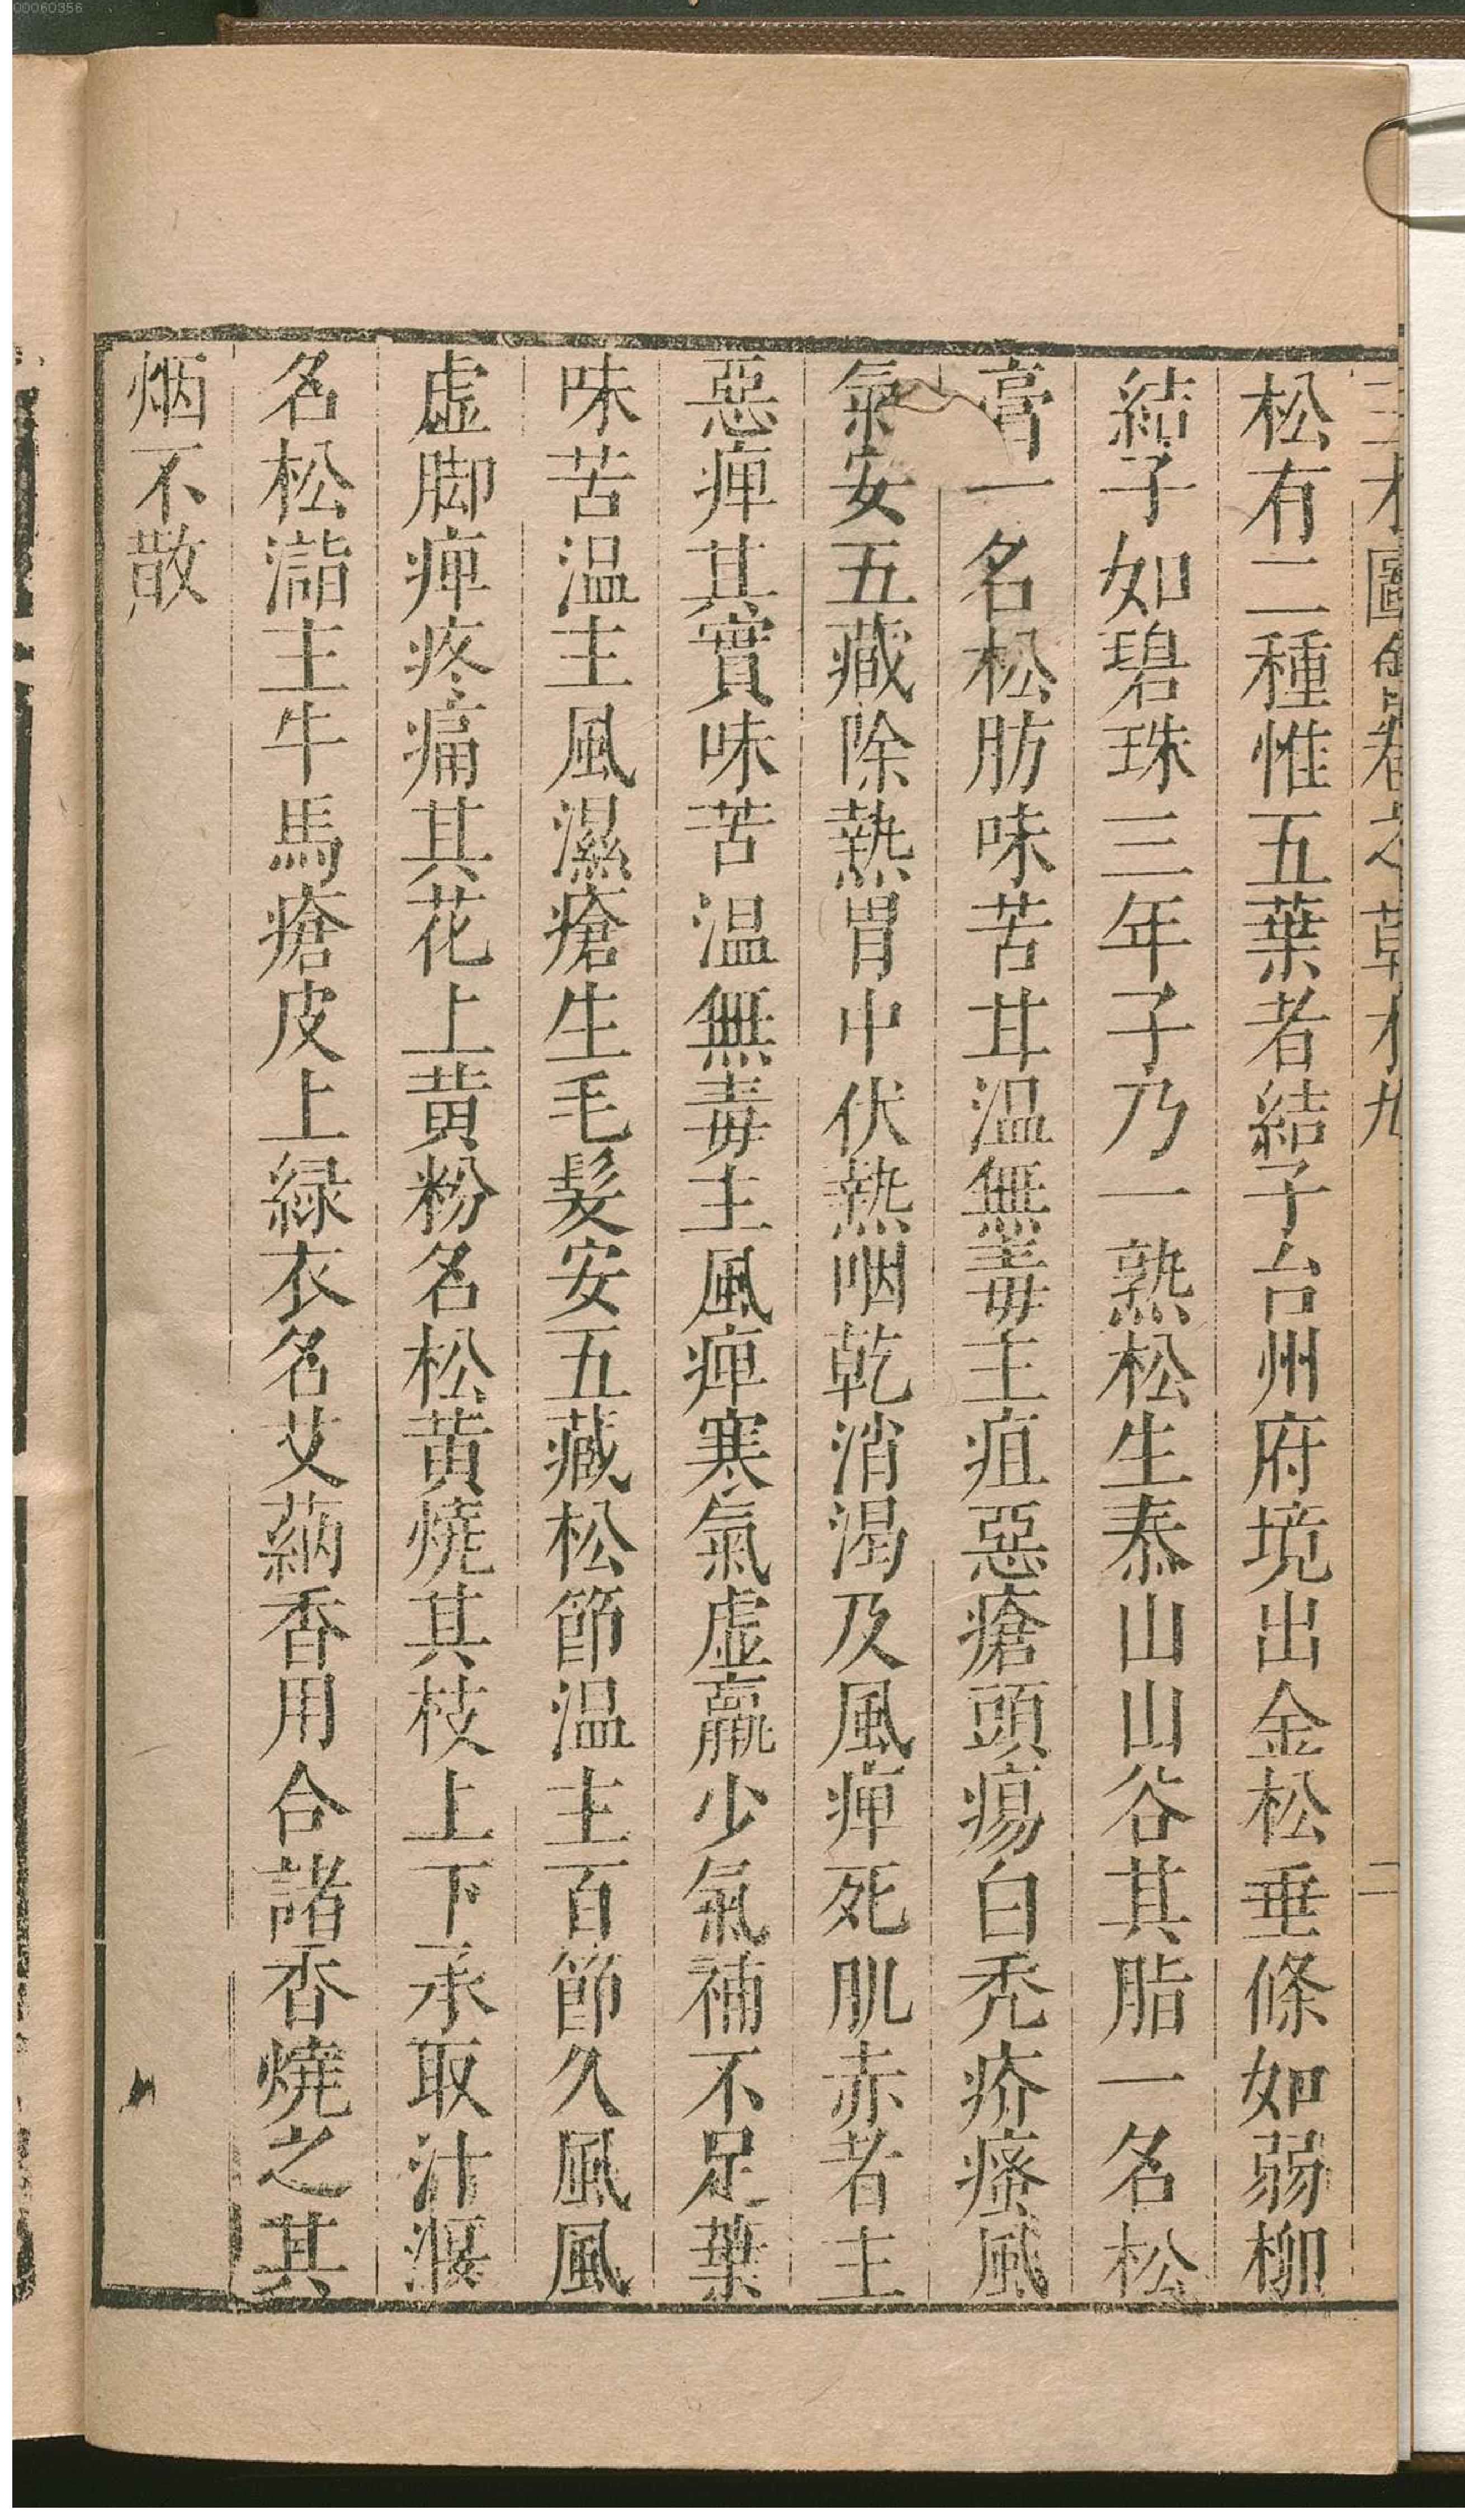 三才圖會卷之草木九
二
松有二種惟五葉者結子台州府境出金松垂條如弱柳
結子如碧珠三年子乃一熟松生泰山山谷其脂一名松
膏一名松肪味苦甘温無毒主疽惡瘡頭瘍白秃疥瘙風
氣安五藏除熱胃中伏熱咽乾消渴及風痺死肌赤者主
惡痺其實味苦温無毒主風痺寒氣虚羸少氣補不足葉
味苦温主風濕瘡生毛髮安五藏松節温主百節久風風
虚脚痺疼痛其花上黄粉名松黄燒其枝上下承取汁㴄
名松㵽主牛馬瘡皮上緑衣名艾蒳香用合諸香燒之其
烟不散
00060356